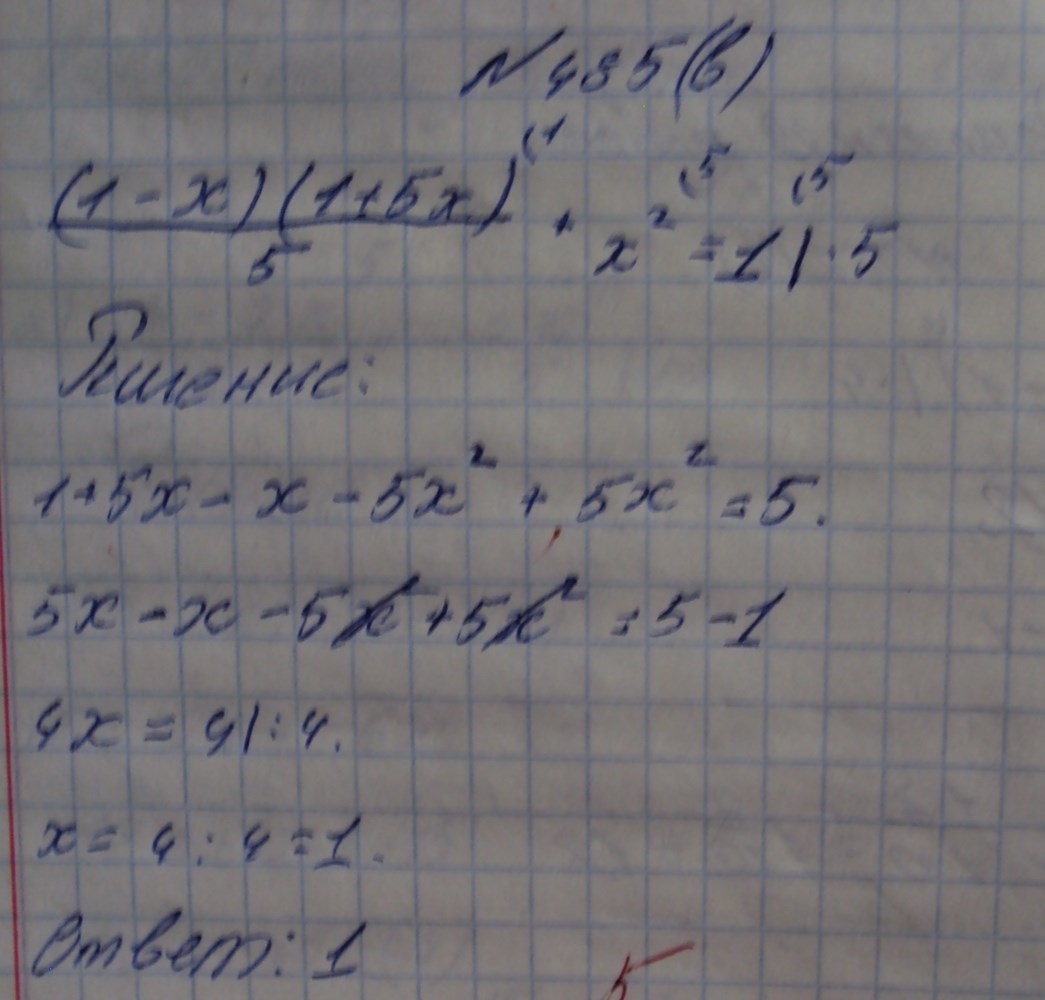 №485(в)
(1-x)(1+5x)⁽¹/5 + x²⁽⁵ = 1⁽⁵ | · 5
Решение:
1+5x - x - 5x² + 5x² = 5.
5x - x - 5x² + 5x² = 5 - 1
4x = 4 | : 4.
x = 4 : 4 = 1.
Ответ: 1
5